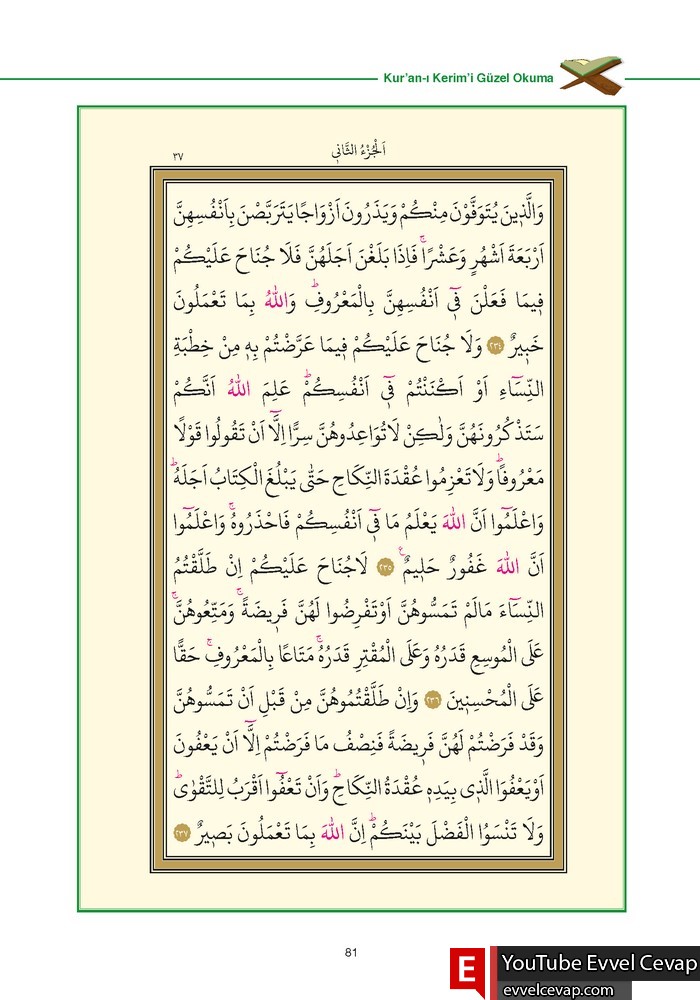 Kur'an-ı Kerim'i Güzel Okuma
اَلْجُزْءُ الثَّانٖي
٣٧
وَالَّذٖينَ يُتَوَفَّوْنَ مِنْكُمْ وَيَذَرُونَ اَزْوَاجًا يَتَرَبَّصْنَ بِاَنْفُسِهِنَّ
اَرْبَعَةَ اَشْهُرٍ وَعَشْرًاۚ فَاِذَا بَلَغْنَ اَجَلَهُنَّ فَلَا جُنَاحَ عَلَيْكُمْ
فٖيمَا فَعَلْنَ فٖٓي اَنْفُسِهِنَّ بِالْمَعْرُوفِؕ وَاللّٰهُ بِمَا تَعْمَلُونَ
خَبٖيرٌ ﴿٢٣٤﴾ وَلَا جُنَاحَ عَلَيْكُمْ فٖيمَا عَرَّضْتُمْ بِهٖ مِنْ خِطْبَةِ
النِّسَٓاءِ اَوْ اَكْنَنْتُمْ فٖٓي اَنْفُسِكُمْؕ عَلِمَ اللّٰهُ اَنَّكُمْ
سَتَذْكُرُونَهُنَّ وَلٰكِنْ لَا تُوَاعِدُوهُنَّ سِرًّا اِلَّٓا اَنْ تَقُولُوا قَوْلًا
مَعْرُوفًاؕ وَلَا تَعْزِمُوا عُقْدَةَ النِّكَاحِ حَتّٰى يَبْلُغَ الْكِتَابُ اَجَلَهُؕ
وَاعْلَمُٓوا اَنَّ اللّٰهَ يَعْلَمُ مَا فٖٓي اَنْفُسِكُمْ فَاحْذَرُوهُۚ وَاعْلَمُٓوا
اَنَّ اللّٰهَ غَفُورٌ حَلٖيمٌࣖ ﴿٢٣٥﴾ لَا جُنَاحَ عَلَيْكُمْ اِنْ طَلَّقْتُمُ
النِّسَٓاءَ مَا لَمْ تَمَسُّوهُنَّ اَوْ تَفْرِضُوا لَهُنَّ فَرٖيضَةًۚ وَمَتِّعُوهُنَّۚ
عَلَى الْمُوسِعِ قَدَرُهُ وَعَلَى الْمُقْتِرِ قَدَرُهُۚ مَتَاعًا بِالْمَعْرُوفِۚ حَقًّا
عَلَى الْمُحْسِنٖينَ ﴿٢٣٦﴾ وَاِنْ طَلَّقْتُمُوهُنَّ مِنْ قَبْلِ اَنْ تَمَسُّوهُنَّ
وَقَدْ فَرَضْتُمْ لَهُنَّ فَرٖيضَةً فَنِصْفُ مَا فَرَضْتُمْ اِلَّٓا اَنْ يَعْفُونَ
اَوْ يَعْفُوَا الَّذٖي بِيَدِهٖ عُقْدَةُ النِّكَاحِؕ وَاَنْ تَعْفُٓوا اَقْرَبُ لِلتَّقْوٰىؕ
وَلَا تَنْسَوُا الْفَضْلَ بَيْنَكُمْؕ اِنَّ اللّٰهَ بِمَا تَعْمَلُونَ بَصٖيرٌ ﴿٢٣٧﴾
81
E YouTube Evvel Cevap
evvelcevap.com